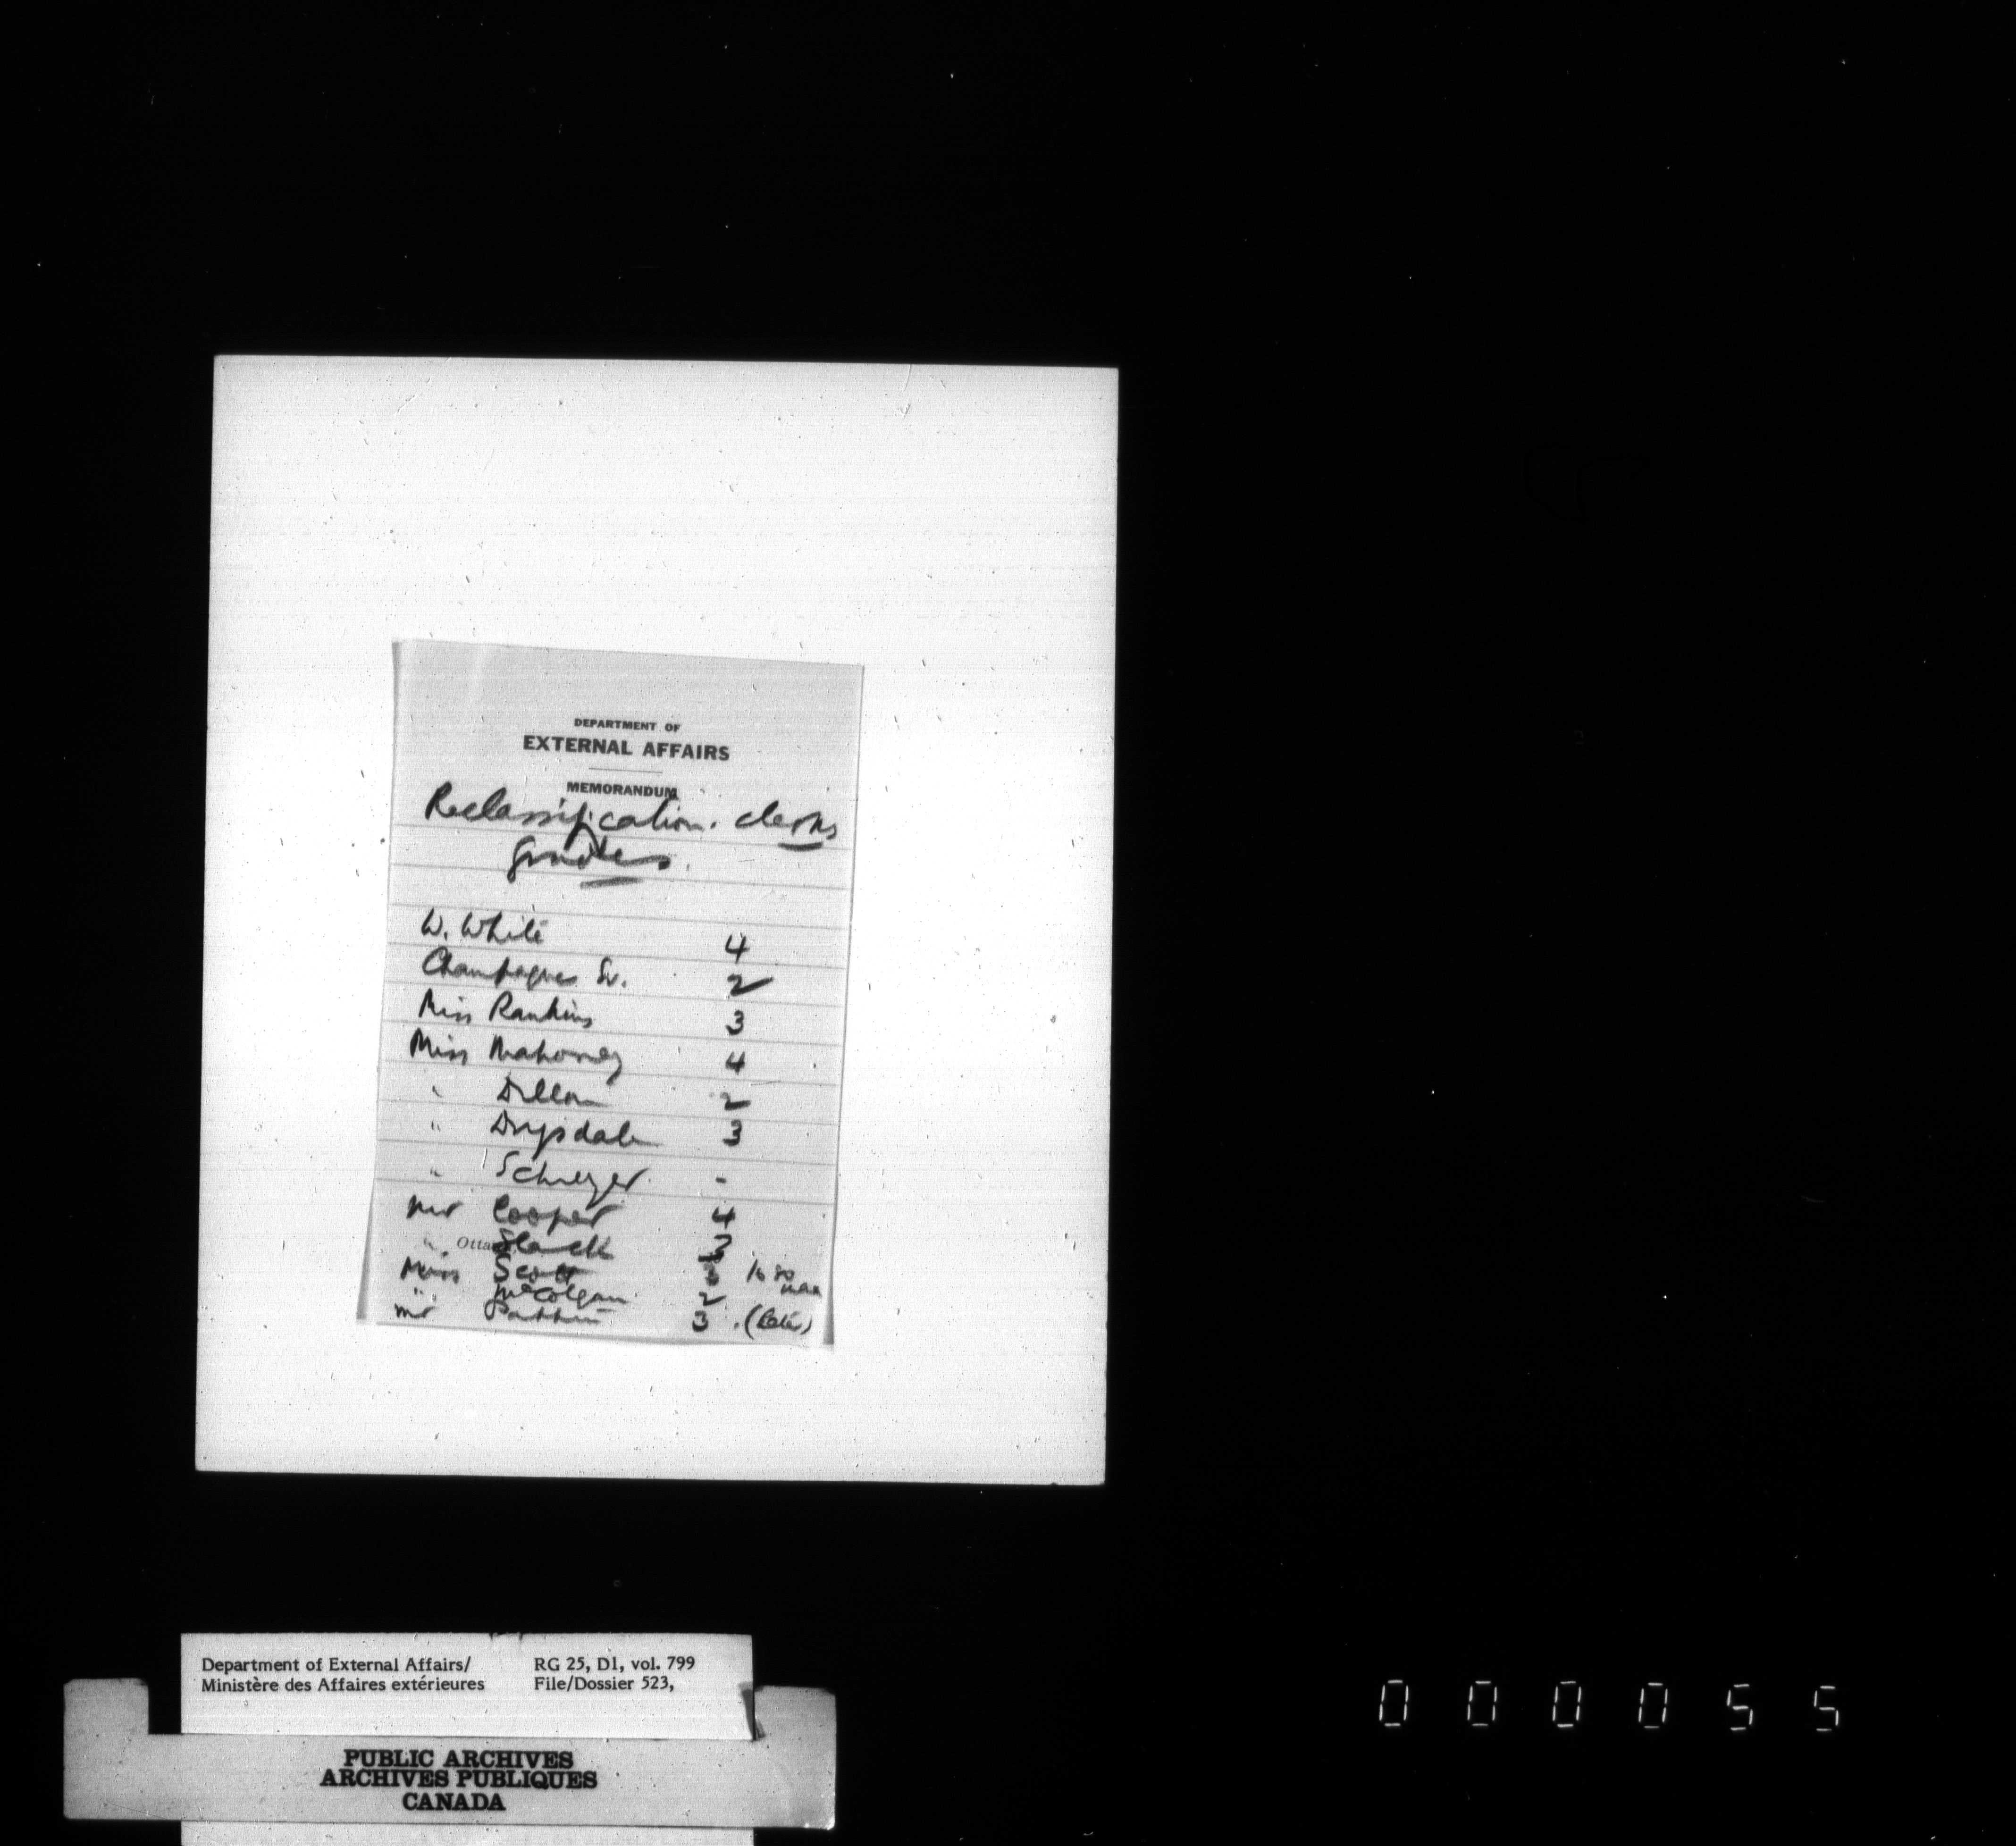 DEPARTMENT OF
EXTERNAL AFFAIRS
MEMORANDUM
Reclassification. clerks
grades.
W. White 4
Champagne Sr. 2
Miss Rankins 3
Miss Mahoney 4
" Dillon 2
" Drysdale 3
" Schryer -
Mr Cooper 4
" Slack 3
Miss Scott 3
" McColgan 2
Mr 3 (Later)
Department of External Affairs/ RG 25, D1, vol. 799
Ministère des Affaires extérieures File/Dossier 523,
PUBLIC ARCHIVES
ARCHIVES PUBLIQUES
CANADA
0 0 0 0 5 5